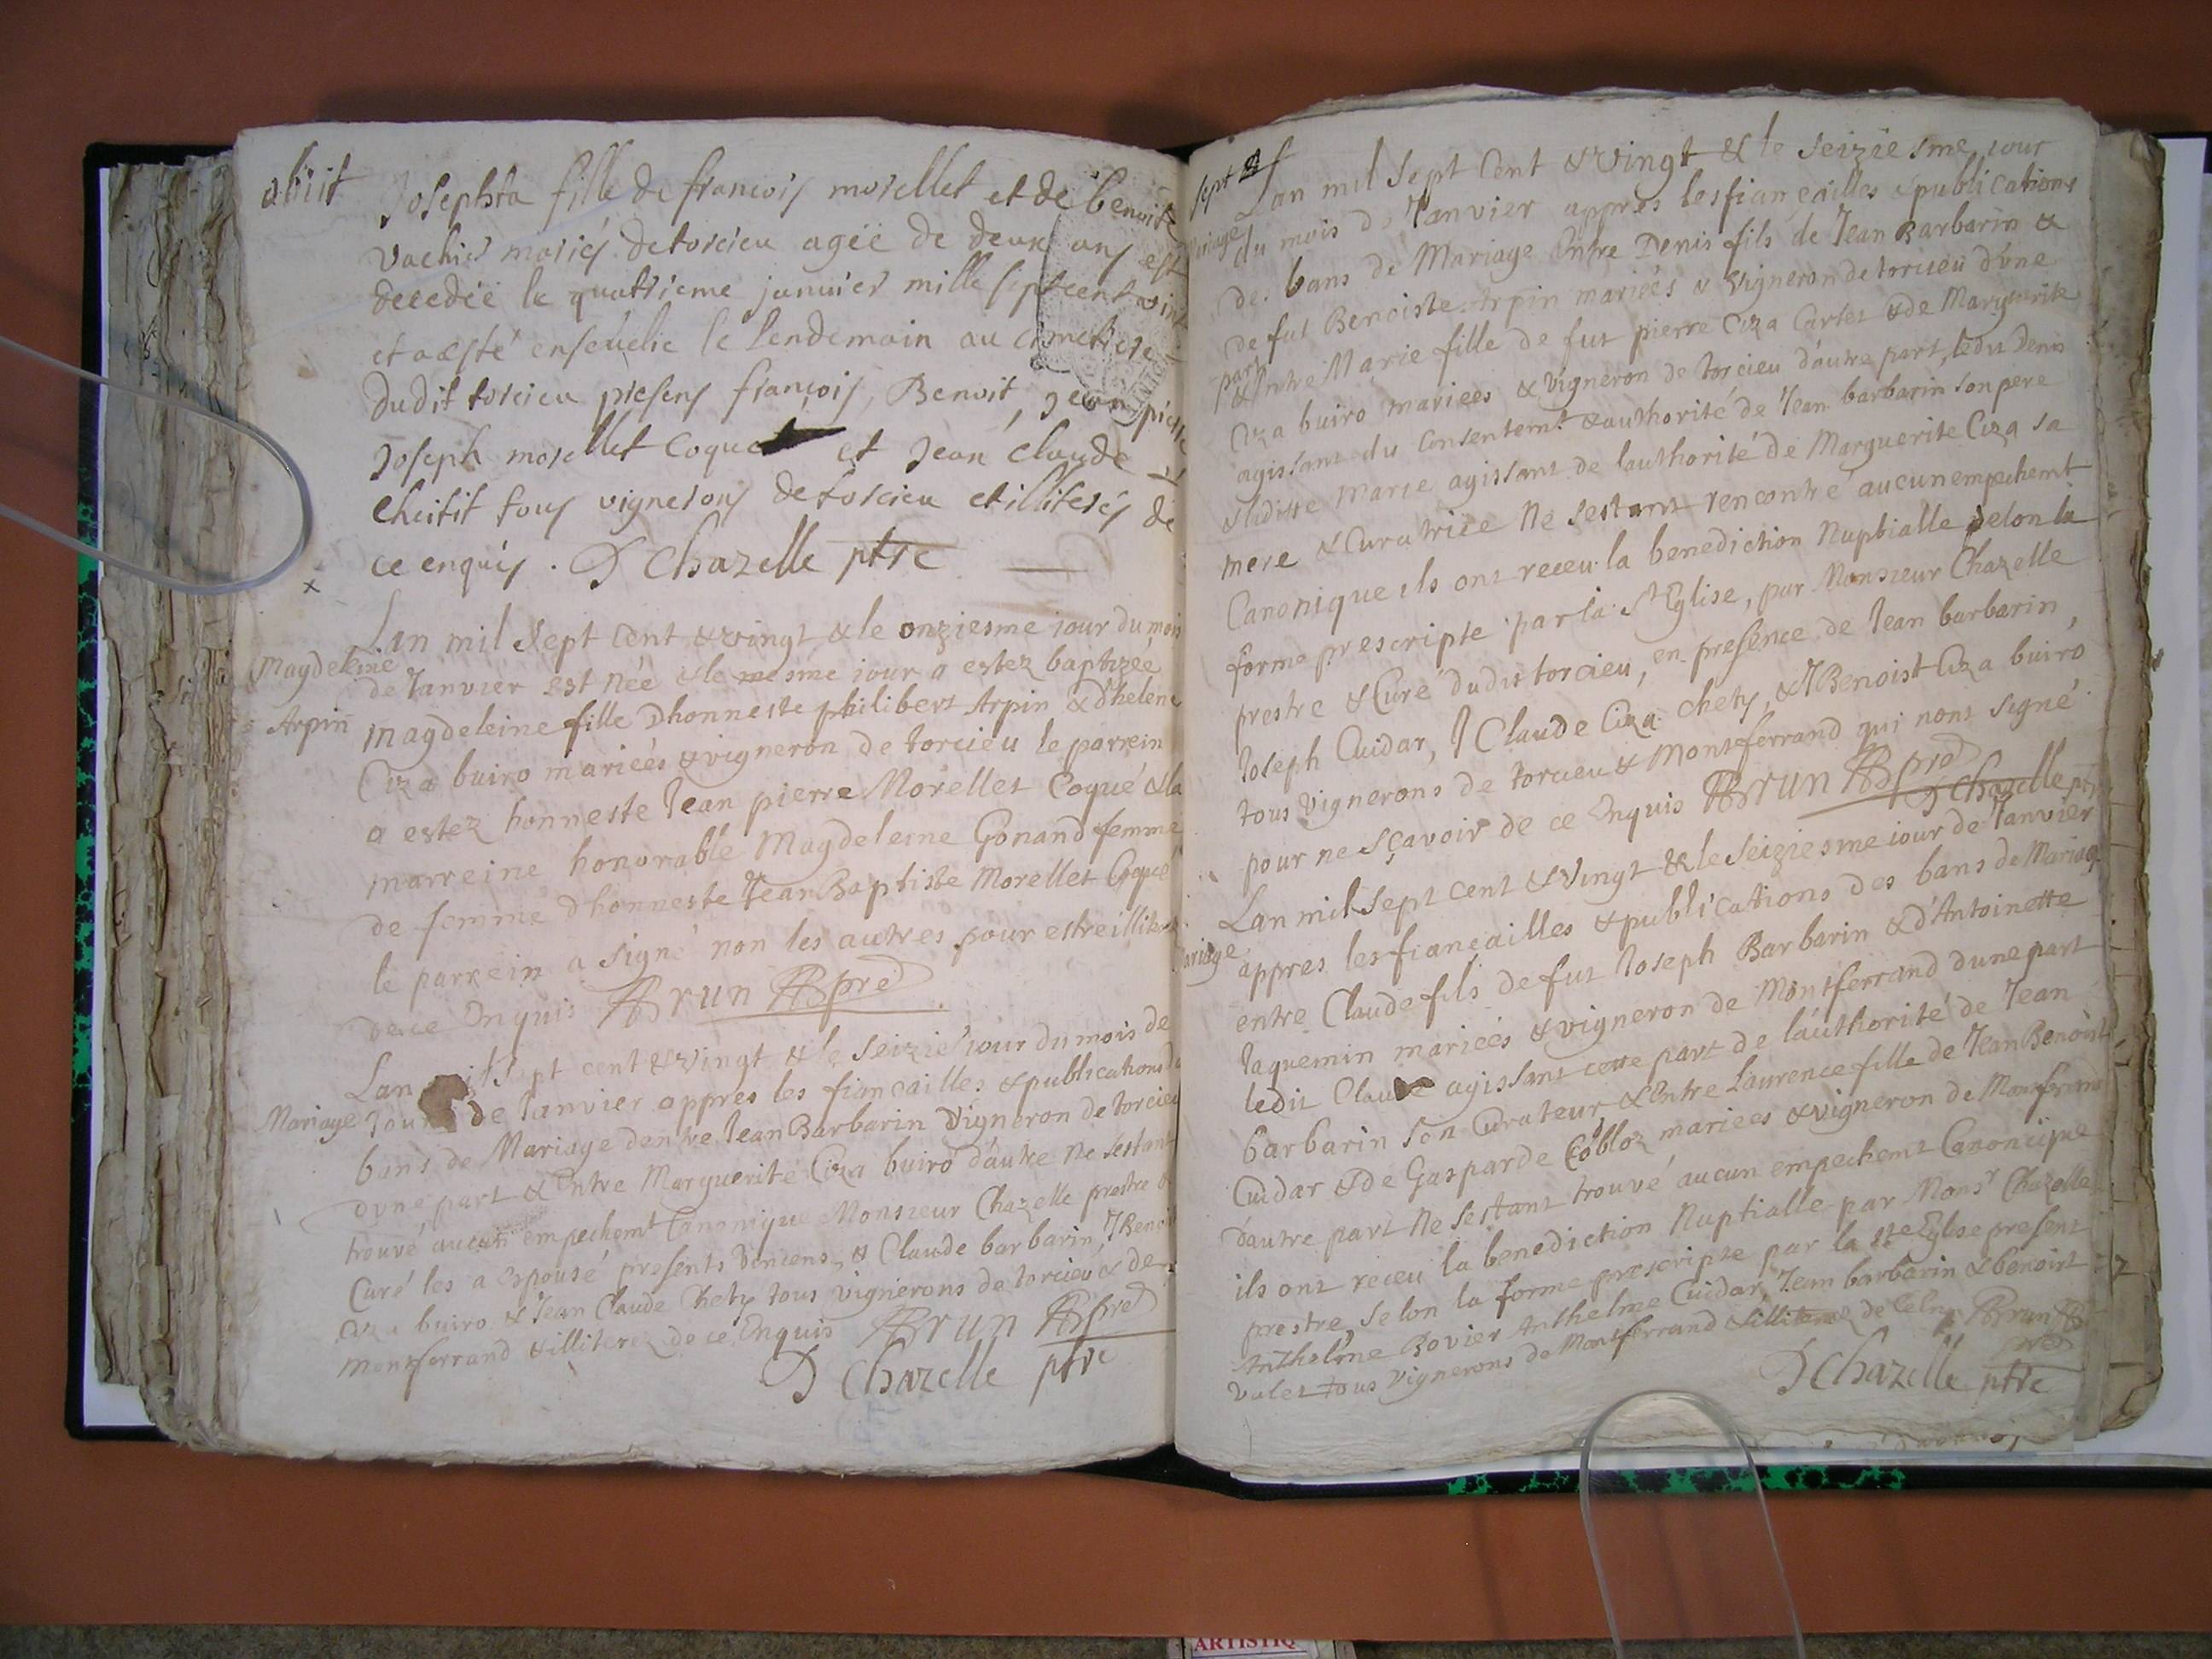 obiit
Josephta fille de francois morellet et de benoite
vachier mariés de torcieu agée de deux ans est
decedée le quatrieme januier mille sept cent vint
et a esté enseuelie le lendemain au cimetiere
dudit torcieu presens françois, Benoit, Jean pierre
Joseph morellet coquet et Jean claude
cheitit tous vignerons de torcieu et illiterés de
ce enquis . D Chazelle ptre
x
Lan mil sept cent & vingt & le onziesme iour du mois
Magdeleine
de Janvier est née & le mesme iour a estez baptizée
Arpin
magdeleine fille dhonneste philibert Arpin & dhelene
Ciza buiro mariées & vigneron de torcieu le parrein
a estez honneste Jean pierre Morellet Coqué & la
marreine honorable Magdeleine Gonand femme
de femme dhonneste Jean Baptiste Morellet Coqué
le parrein a signé non les autres pour estre illiterez
de ce Enquis Brun pre
Lan mil sept cent & vingt & le seizie iour du mois de
Mariage
Jour de Janvier appres les fiancailles & publications de
bans de Mariage dentre Jean Barbarin Vigneron de torcieu
dune part & Entre Marguerite Ciza buiro dautre ne sestant
trouvé aucun empechemt Canonique Monsieur Chazelle prestre &
Curé les a Espousé presents Vincens, & Claude barbarin, J Benoist
Ciza buiro & Jean Claude Chety tous vignerons de torcieu & de
montferrand & illiterez de ce Enquis Brun pre
D Chazelle ptre
sept
Lan mil sept Cent & vingt & le seiziesme iour
Mariage
du mois de Janvier appres les fiancailles & publications
de bans de Mariage Entre Denis fils de Jean Barbarin &
de fut Benoiste Arpin mariées & Vigneron de torcieu d'une
part
& Entre Marie fille de fut pierre Ciza Carlet & de Marguerite
Ciza buiro mariees & vigneron de torcieu dautre part, ledit Denis
agissant du Consentemt & authorité de Jean barbarin son pere
& laditte Marie agissant de lauthorité de Marguerite Ciza sa
mere & Curatrice Ne sestant rencontré aucun empechemt
Canonique ils ont receu la benediction Nuptialle selon la
forme prescripte par la Ste Eglise, par Monsieur Chazelle
prestre & Curé dudit torcieu, en presence de Jean barbarin,
Joseph Cuidar, J Claude Ciza chety, & J Benoist Ciza buiro
tous vignerons de torcieu & Montferrand qui nont signé
pour ne sçavoir de ce Enquis Brun pre
D Chazelle ptre
Lan mil sept cent & vingt & le seiziesme iour de Janvier
Mariage
appres les fiancailles & publications des bans de Mariage
entre Claude fils de fut Joseph Barbarin & d'Antoinette
Jaquemin mariées & vigneron de Montferrand dune part
ledit Claude agissant cette part de lauthorité de Jean
barbarin son Curateur & Entre Laurence fille de Jean Benoist
Cuidar & de Gasparde Cobloz mariees & vigneron de Montferrand
dautre part Ne sestant trouvé aucun empechemt Canonique
ils ont receu la benediction Nuptialle par Monsr Chazelle
prestre selon la forme prescripte par la ste Eglise present
Anthelme Bovier Anthelme Cuidar, Jean barbarin & benoist
valet tous vignerons de Montferrand & illiterez de Brun
pre
D Chazelle ptre
ARTISTIQ